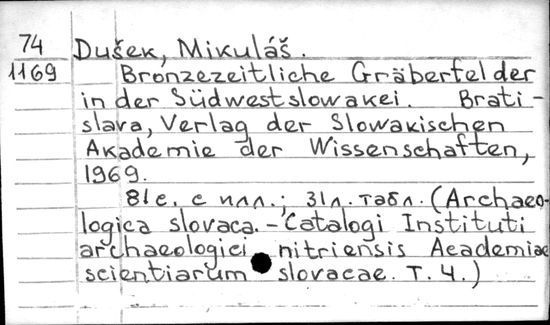 74 Dušek, Mikuláš.
1169 Bronzezeitliche Gräberfelder
in der Südwestslowakei. Brati-
slava, Verlag der Slowakischen
Akademie der Wissenschaften,
1969.
81 с. с илл.; 31 л. табл. (Archaeo-
logica slovaca. - Catalogi Instituti
archaeologici nitriensis Academiae
scientiarum slovacae. T. 4.)